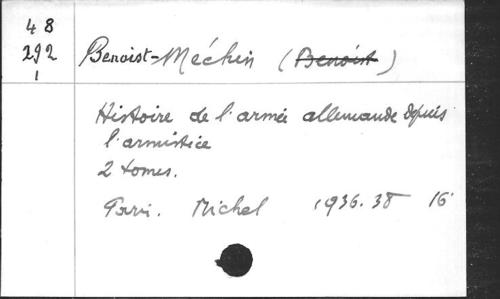 48
292
1
Benoist-Méchin (Benoist)
Histoire de l'armée allemande depuis
l'armistice
2 tomes.
Paris. Michel 1936.38 16°